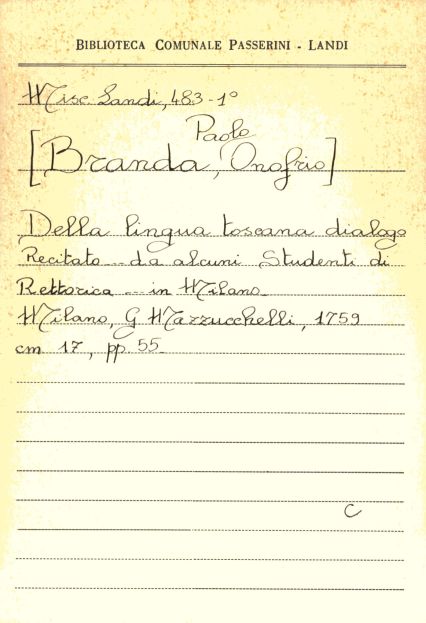 BIBLIOTECA COMUNALE PASSERINI - LANDI
Misc. Landi, 483-1º
Paolo
[Branda, Onofrio]
Della lingua toscana dialogo
Recitato ... da alcuni Studenti di
Rettorica ... in Milano
Milano, G Mazzucchelli, 1759
cm 17, pp. 55
C